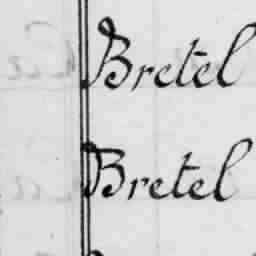 Bretel
Bretel